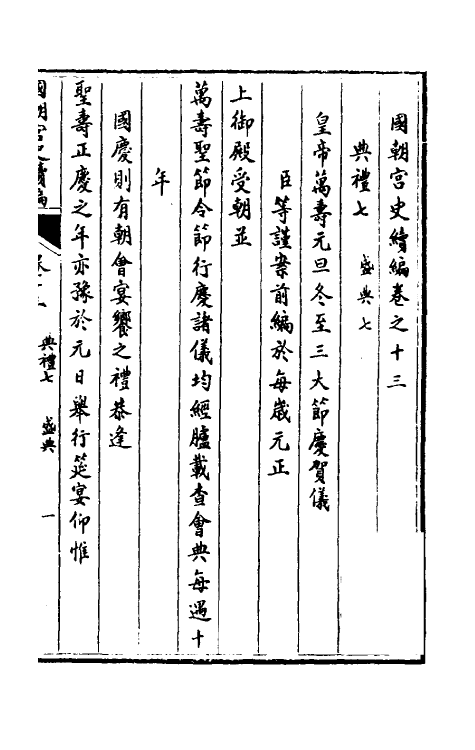 國朝宮史續編卷之十三
典禮七　盛典七
皇帝萬壽元旦冬至三大節慶賀儀
臣等謹案前編於每歲元正
上御殿受朝並
萬壽聖節令節行慶諸儀均經臚載查會典每遇十
年
國慶則有朝會宴饗之禮恭逢
聖壽正慶之年亦豫於元日舉行筵宴仰惟
國朝宮史續編
典禮七　盛典
一